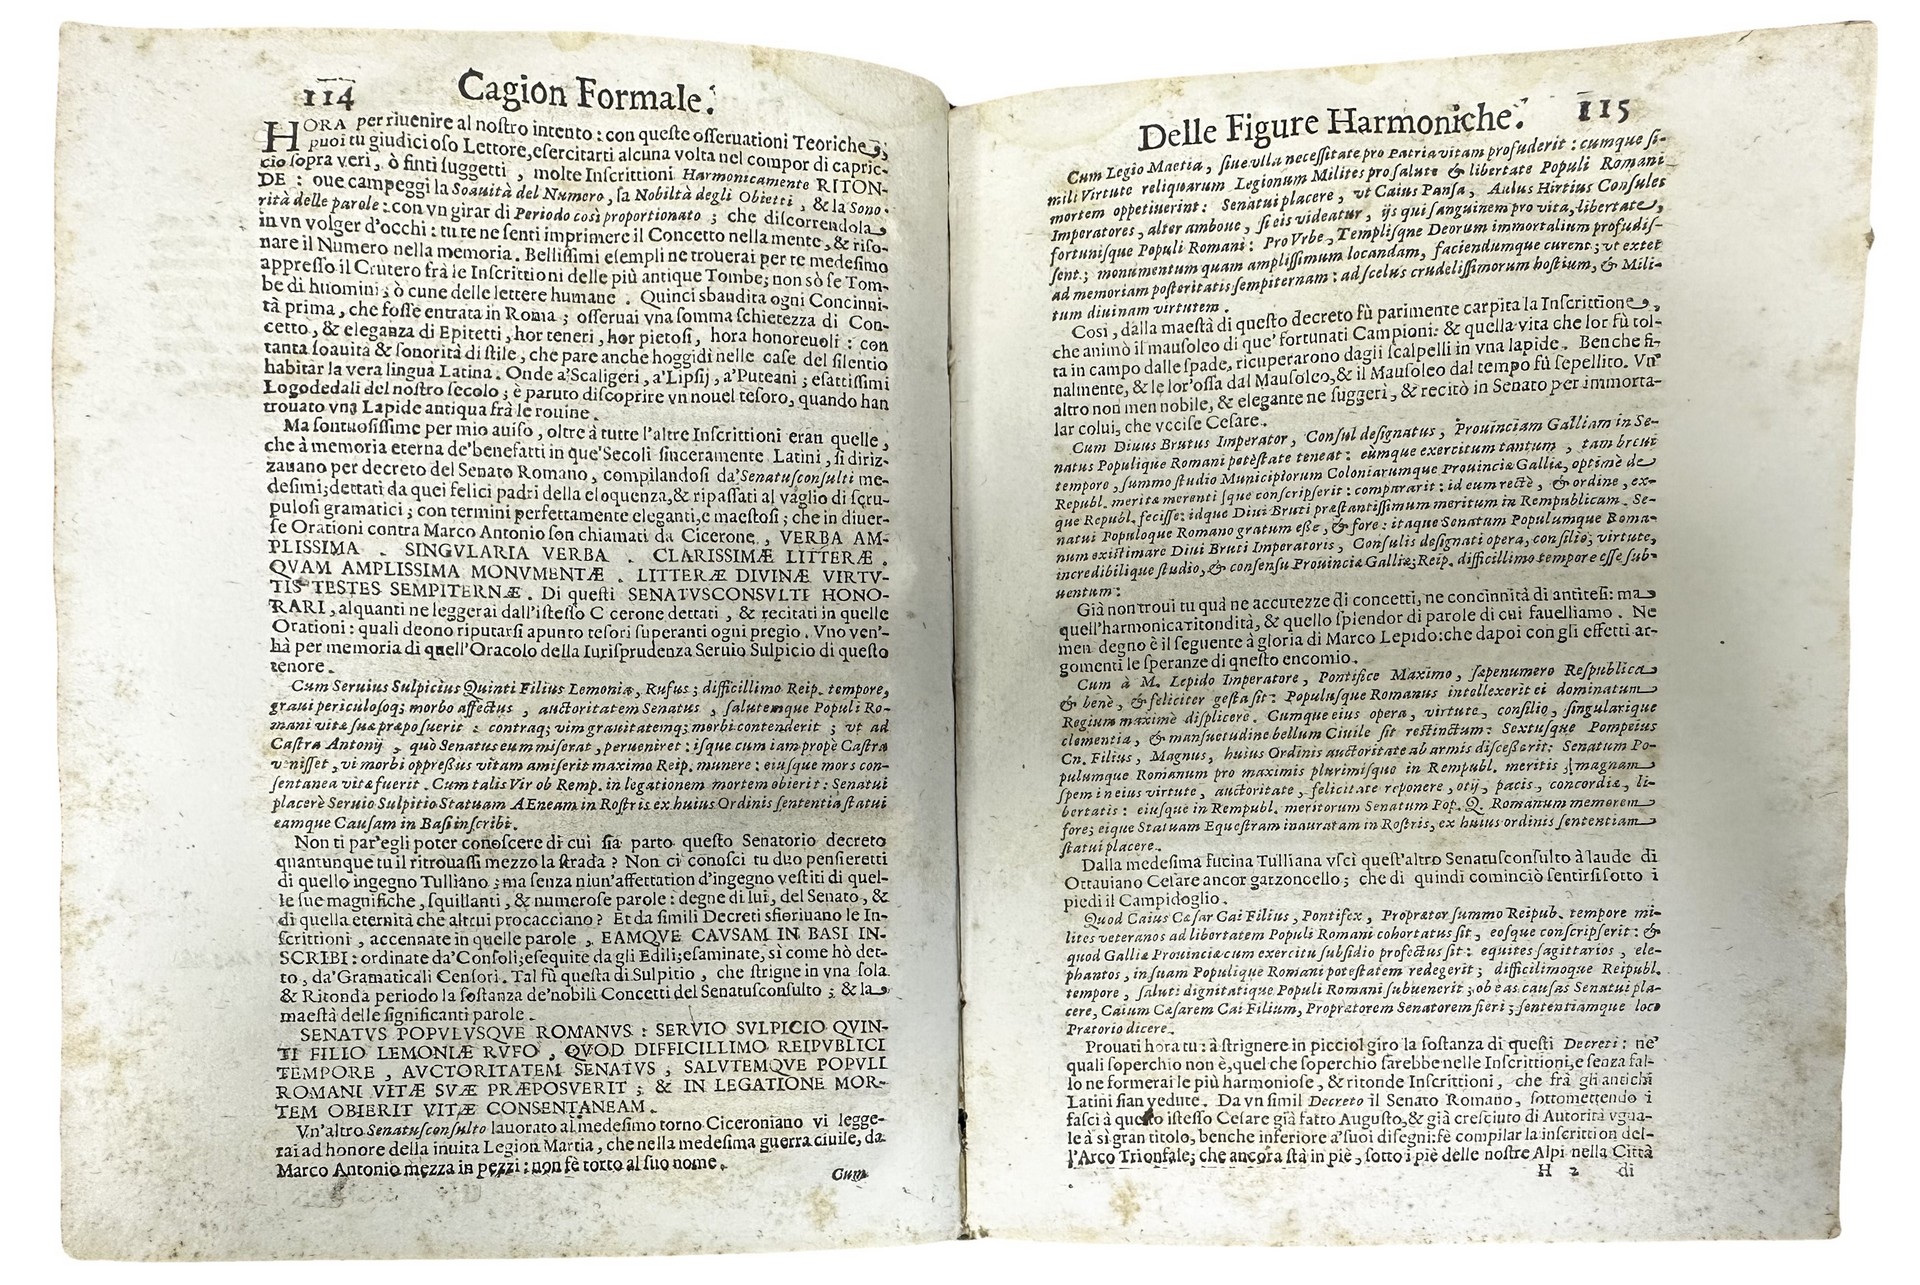 114
Cagion Formale.
HORA per riuenire al nostro intento: con queste osseruationi Teoriche,
puoi tu giudicioso Lettore, esercitarti alcuna volta nel compor di capric-
cio sopra veri, ò finti suggetti, molte Inscrittioni Harmonicamente RITON-
DE: oue campeggi la Soauità del Numero, la Nobiltà degli Obietti, & la Sono-
rità delle parole: con vn girar di Periodo così proportionato; che discorrendola
in vn volger d'occhi: tu te ne senti imprimere il Concetto nella mente, & riso-
nare il Numero nella memoria. Bellissimi esempli ne trouerai per te medesimo
appresso il Crutero frà le Inscrittioni delle più antique Tombe; non sò se Tom-
be di huomini; ò cune delle lettere humane. Quinci sbandita ogni Concinni-
tà prima, che fosse entrata in Roma; osseruai vna somma schietezza di Con-
cetto, & eleganza di Epitetti, hor teneri, hor pietosi, hora honoreuoli: con
tanta soauità & sonorità di stile, che pare anche hoggidì nelle case del silentio
habitar la vera lingua Latina. Onde a'Scaligeri, a'Lipsij, a'Puteani; esattissimi
Logodedali del nostro secolo; è paruto discoprire vn nouel tesoro, quando han
trouato vna Lapide antiqua frà le rouine.
Ma sontuosissime per mio auiso, oltre à tutte l'altre Inscrittioni eran quelle,
che à memoria eterna de'benefatti in que'Secoli sinceramente Latini, si diriz-
zauano per decreto del Senato Romano, compilandosi da'Senatusconsulti me-
desimi; dettati da quei felici padri della eloquenza, & ripassati al vaglio di scru-
pulosi gramatici; con termini perfettamente eleganti, e maestosi; che in diuer-
se Orationi contra Marco Antonio son chiamati da Cicerone, VERBA AM-
PLISSIMA. SINGVLARIA VERBA. CLARISSIMÆ LITTERÆ.
QVAM AMPLISSIMA MONVMENTÆ. LITTERÆ DIVINÆ VIRTV-
TIS TESTES SEMPITERNÆ. Di questi SENATVSCONSVLTI HONO-
RARI, alquanti ne leggerai dall'istesso C cerone dettati, & recitati in quelle
Orationi: quali deono riputarsi apunto tesori superanti ogni pregio. Vno ven'-
hà per memoria di quell'Oracolo della Iurisprudenza Seruio Sulpicio di questo
tenore.
Cum Seruius Sulpicius Quinti Filius Lemonia, Rufus; difficillimo Reip. tempore,
graui periculosoq; morbo affectus, auctoritatem Senatus, salutemque Populi Ro-
mani vitæ suæ præposuerit: contraq; vim grauitatemq; morbi contenderit; vt ad
Castra Antonij, quò Senatus eum miserat, perueniret: isque cum iam propè Castra
venisset, vi morbi oppreßus vitam amiserit maximo Reip. munere: eiusque mors con-
sentanea vitæ fuerit. Cum talis Vir ob Remp. in legationem mortem obierit: Senatui
placerè Seruio Sulpitio Statuam AEneam in Rostris ex huius Ordinis sententia statui
eamque Causam in Basi inscribi.
Non ti par'egli poter conoscere di cui sia parto questo Senatorio decreto
quantunque tu il ritrouassi mezzo la strada? Non ci conosci tu duo pensieretti
di quello ingegno Tulliano; ma senza niun'affettation d'ingegno vestiti di quel-
le sue magnifiche, squillanti, & numerose parole: degne di lui, del Senato, &
di quella eternità che altrui procacciano? Et da simili Decreti sfioriuano le In-
scrittioni, accennate in quelle parole, EAMQVE CAVSAM IN BASI IN-
SCRIBI: ordinate da'Consoli; esequite da gli Edili; esaminate, sì come hò det-
to, da'Gramaticali Censori. Tal fù questa di Sulpitio, che strigne in vna sola
& Ritonda periodo la sostanza de'nobili Concetti del Senatusconsulto; & la
maestà delle significanti parole.
SENATVS POPVLVSQVE ROMANVS: SERVIO SVLPICIO QVIN-
TI FILIO LEMONIÆ RVFO, QVOD DIFFICILLIMO REIPVBLICI
TEMPORE, AVCTORITATEM SENATVS, SALVTEMQVE POPVLI
ROMANI VITÆ SVÆ PRÆPOSVERIT; & IN LEGATIONE MOR-
TEM OBIERIT VITÆ CONSENTANEAM.
Vn'altro Senatusconsulto lauorato al medesimo torno Ciceroniano vi legge-
rai ad honore della inuita Legion Martia, che nella medesima guerra ciuile, da
Marco Antonio mezza in pezzi: non fè torto al suo nome.
Cum
Delle Figure Harmoniche.
115
Cum Legio Maetia, siue vlla necessitate pro Patria vitam profuderit: cumque si-
mili Virtute reliquarum Legionum Milites pro salute & libertate Populi Romani
mortem oppetiuerint: Senatui placere, vt Caius Pansa, Aulus Hirtius Consules
Imperatores, alter amboue, si eis videatur, ijs qui sanguinem pro vita, libertate,
fortunisque Populi Romani: Pro Vrbe, Templisque Deorum immortalium profudis-
sent; monumentum quam amplissimum locandam, faciendumque curent; vt extet
ad memoriam posteritatis sempiternam: ad scelus crudelissimorum hostium, & Mili-
tum diuinam virtutem.
Così, dalla maestà di questo decreto fù parimente carpita la Inscrittione,
che animò il mausoleo di que' fortunati Campioni: & quella vita che lor fù tol-
ta in campo dalle spade, ricuperarono dagli scalpelli in vna lapide. Benche fi-
nalmente, & le lor'ossa dal Mausoleo, & il Mausoleo dal tempo fù sepellito. Vn'
altro non men nobile, & elegante ne suggerì, & recitò in Senato per immorta-
lar colui, che vccise Cesare.
Cum Diuus Brutus Imperator, Consul designatus, Prouinciam Galliam in Se-
natus Populique Romani potestate teneat: eumque exercitum tantum, tam breui
tempore, summo studio Municipiorum Coloniarumque Prouinciæ Galliæ, optimè de
Republ. merita merenti sque conscripserit: compararit: id eum rectè, & ordine, ex-
que Republ. fecisse: idque Diui Bruti præstantissimum meritum in Rempublicam. Se-
natui Populoque Romano gratum eße, & fore: itaque Senatum Populumque Roma-
num existimare Diui Bruti Imperatoris, Consulis designati opera, consilio, virtute,
incredibilique studio, & consensu Prouinciæ Galliæ; Reip. difficillimo tempore esse sub-
uentum:
Già non troui tu quà ne accutezze di concetti, ne concinnità di antitesi: ma
quell'harmonica ritondità, & quello splendor di parole di cui fauelliamo. Ne
men degno è il seguente à gloria di Marco Lepido: che dapoi con gli effetti ar-
gomentì le speranze di qnesto encomio.
Cum à M. Lepido Imperatore, Pontifice Maximo, sæpenumero Respublica
& benè, & feliciter gesta sit: Populusque Romanus intellexerit ei dominatum
Regium maximè displicere. Cumque eius opera, virtute, consilio, singularique
clementia, & mansuetudine bellum Ciuile sit restinctum: Sextusque Pompeius
Cn. Filius, Magnus, huius Ordinis auctoritate ab armis disceßerit: Senatum Po-
pulumque Romanum pro maximis plurimisque in Rempubl. meritis, magnam
spem in eius virtute, auctoritate, felicitate reponere, otij, pacis, concordiæ, li-
bertatis: eiusque in Rempubl. meritorum Senatum Pop. Q. Romanum memorem
fore; eique Statuam Equestram inauratam in Rostris, ex huius ordinis sententiam
statui placere.
Dalla medesima fucina Tulliana vscì quest'altro Senatusconsulto à laude di
Ottauiano Cesare ancor garzoncello; che di quindi cominciò sentirsi sotto i
piedi il Campidoglio.
Quod Caius Cæsar Gai Filius, Pontifex, Proprætor summo Reipub. tempore mi-
lites veteranos ad libertatem Populi Romani cohortatus sit, eosque conscripserit: &
quod Galliæ Prouincia cum exercitu subsidio profectus sit: equites sagittarios, ele-
phantos, in suam Populique Romani potestatem redegerit; difficilimoque Reipubl.
tempore, saluti dignitatique Populi Romani subuenerit; ob eas causas Senatui pla-
cere, Caium Cæsarem Cai Filium, Proprætorem Senatorem fieri; sententiamque loco
Prætorio dicere.
Prouati hora tu: à strignere in picciol giro la sostanza di questi Decreti: ne'
quali soperchio non è, quel che soperchio sarebbe nelle Inscrittioni, e senza fal-
lo ne formerai le più harmoniose, & ritonde Inscrittioni, che frà gli antichi
Latini sian vedute. Da vn simil Decreto il Senato Romano, sottomettendo i
fasci à questo istesso Cesare già fatto Augusto, & già cresciuto di Autorità vgua-
le à sì gran titolo, benche inferiore a'suoi disegni: fè compilar la inscrittion del-
l'Arco Trionfale; che ancora stà in piè, sotto i piè delle nostre Alpi nella Città
H 2 di